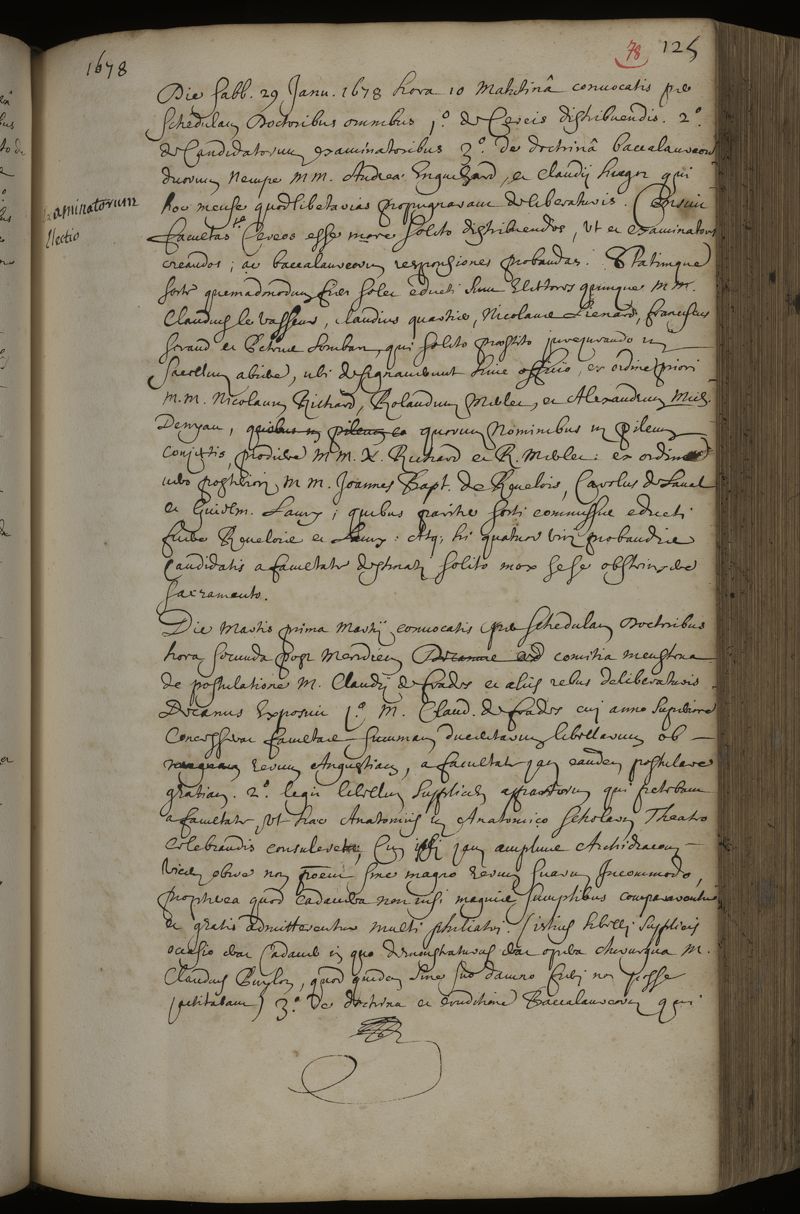 1678
78 125
Die sabb. 29 Janu. 1678 hora 10 Matutinâ convocatis per
schedulam Doctoribus omnibus 1.º de Cereis distribuendis. 2.º
de Candidatorum examinatoribus 3.º de doctrinâ baccalaureorū
duorum nempe M M. Andrea Enguehard, et Claudij huger qui
hoc mense quodlibetarias propugnarant deliberaturis. Censuit
Examinatorum
Electio
facultas 1.º Cereos esse more solito distribuendos, ut et examinatores
creandos; ac baccalaureorum responsiones probandas. Statimque
sorte quemadmodum fieri solet educti sunt Electores quinque M M.
Claudius le Vasseur, Claudius quartier, Nicolaus Lienard, franciscus
et Petrus qui solito praestito jurejurando in
sacellum abiere, ubi designaverunt huic officio, ex ordine priori
M.M. Nicolaum Richard, Rolandum Merlet, et Alexandrum Mich.
Denyau, quibus in pileum co quorum Nominibus in pileum
conjectis, prodiere M M. N. Richard et R. Merlet: ex ordine
vero posteriori M M. Joannes Bapt. de Rquelois, Carolus de Laual
et Guielm. Laury; quibus pariter sorti commissis educti
fuere Rquelois et Laury: Atq; hi quatuor viri probandis
Candidatis a facultate destinati solito mox sese obstrinxere
sacramento.
Die Martis prima Martij convocatis per schedulam Doctoribus
hora secunda post Meridiem Decanus ad comitia menstrua
de postulatione M. Claudij de frades et alijs rebus deliberaturis
Decanus Exposuit 1.º M. Claud. de frades cuj anno superiore
Concesserat facultas summam ducentarum libellarum ob
rerum Angustiam, a facultate jam eandem postulare
gratiam. 2.º legit libellum supplicem qui petebant
a facultate, ut hac Anatomiis in Anatomico scholarum Theatro
celebrandis consuleret, Cum jam amplius Archidiaconi
vices obire non possint sine magno rerum suarum Incommodo,
propterea quod cadavera non nisi magnis sumptibus compararentur
et gratis admitterentur multi philiatri. (istius libelli supplicis
occasio erat Cadaver in quo demonstraturus erat opera chirurgica M.
Claudius quod quidem sine suo damno fieri non posse
putitabant) 3.º De doctrina et eruditione Baccalaureorum qui